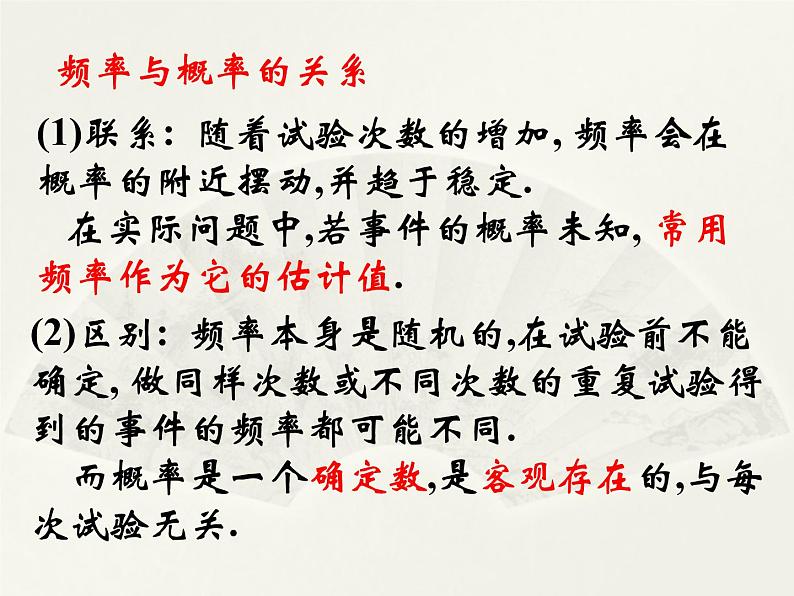 频率与概率的关系
(1)联系：随着试验次数的增加, 频率会在
概率的附近摆动,并趋于稳定.
在实际问题中,若事件的概率未知, 常用
频率作为它的估计值.
(2)区别：频率本身是随机的,在试验前不能
确定, 做同样次数或不同次数的重复试验得
到的事件的频率都可能不同.
而概率是一个确定数,是客观存在的,与每
次试验无关.